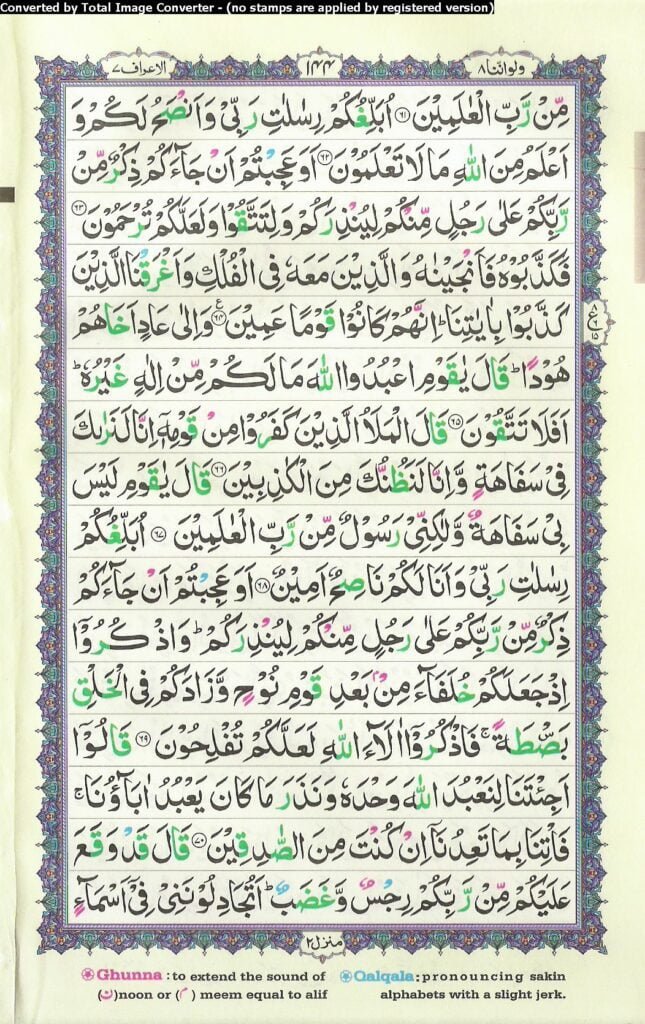 Converted by Total Image Converter - (no stamps are applied by registered version)
ولواننا ٨
١٤٤
الاعراف ٧
مِّنۡ رَّبِّ الۡعٰلَمِيۡنَ ﴿٦١﴾ اُبَلِّغُكُمۡ رِسٰلٰتِ رَبِّىۡ وَاَنۡصَحُ لَكُمۡ وَ
اَعۡلَمُ مِنَ اللّٰهِ مَا لَا تَعۡلَمُوۡنَ ﴿٦٢﴾ اَوَعَجِبۡتُمۡ اَنۡ جَآءَكُمۡ ذِكۡرٌ مِّنۡ
رَّبِّكُمۡ عَلٰى رَجُلٍ مِّنۡكُمۡ لِيُنۡذِرَكُمۡ وَلِتَتَّقُوۡا وَلَعَلَّكُمۡ تُرۡحَمُوۡنَ ﴿٦٣﴾
فَكَذَّبُوۡهُ فَاَنۡجَيۡنٰهُ وَالَّذِيۡنَ مَعَهٗ فِى الۡفُلۡكِ وَاَغۡرَقۡنَا الَّذِيۡنَ
كَذَّبُوۡا بِاٰيٰتِنَا ؕ اِنَّهُمۡ كَانُوۡا قَوۡمًا عَمِيۡنَ ﴿٦٤﴾ وَاِلٰى عَادٍ اَخَاهُمۡ
هُوۡدًا ؕ قَالَ يٰقَوۡمِ اعۡبُدُوا اللّٰهَ مَا لَكُمۡ مِّنۡ اِلٰهٍ غَيۡرُهٗ ؕ
اَفَلَا تَتَّقُوۡنَ ﴿٦٥﴾ قَالَ الۡمَلَاُ الَّذِيۡنَ كَفَرُوۡا مِنۡ قَوۡمِهٖۤ اِنَّا لَنَرٰٮكَ
فِىۡ سَفَاهَةٍ وَّاِنَّا لَنَظُنُّكَ مِنَ الۡكٰذِبِيۡنَ ﴿٦٦﴾ قَالَ يٰقَوۡمِ لَيۡسَ
بِىۡ سَفَاهَةٌ وَّلٰكِنِّىۡ رَسُوۡلٌ مِّنۡ رَّبِّ الۡعٰلَمِيۡنَ ﴿٦٧﴾ اُبَلِّغُكُمۡ
رِسٰلٰتِ رَبِّىۡ وَاَنَا لَكُمۡ نَاصِحٌ اَمِيۡنٌ ﴿٦٨﴾ اَوَعَجِبۡتُمۡ اَنۡ جَآءَكُمۡ
ذِكۡرٌ مِّنۡ رَّبِّكُمۡ عَلٰى رَجُلٍ مِّنۡكُمۡ لِيُنۡذِرَكُمۡ ؕ وَاذۡكُرُوۡۤا
اِذۡ جَعَلَكُمۡ خُلَفَآءَ مِنۡۢ بَعۡدِ قَوۡمِ نُوۡحٍ وَّزَادَكُمۡ فِى الۡخَلۡقِ
بَصۜۡطَةً ۚ فَاذۡكُرُوۡۤا اٰلَآءَ اللّٰهِ لَعَلَّكُمۡ تُفۡلِحُوۡنَ ﴿٦٩﴾ قَالُوۡۤا
اَجِئۡتَنَا لِنَعۡبُدَ اللّٰهَ وَحۡدَهٗ وَنَذَرَ مَا كَانَ يَعۡبُدُ اٰبَآؤُنَا ۚ
فَاۡتِنَا بِمَا تَعِدُنَاۤ اِنۡ كُنۡتَ مِنَ الصّٰدِقِيۡنَ ﴿٧٠﴾ قَالَ قَدۡ وَقَعَ
عَلَيۡكُمۡ مِّنۡ رَّبِّكُمۡ رِجۡسٌ وَّغَضَبٌ ؕ اَتُجَادِلُوۡنَنِىۡ فِىۡۤ اَسۡمَآءٍ
منزل ٢
Ghunna : to extend the sound of (ن) noon or (م) meem equal to alif
Qalqala: pronouncing sakin alphabets with a slight jerk.